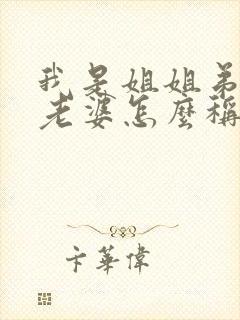 我是姐姐弟
老婆怎麼稱
卡華偉